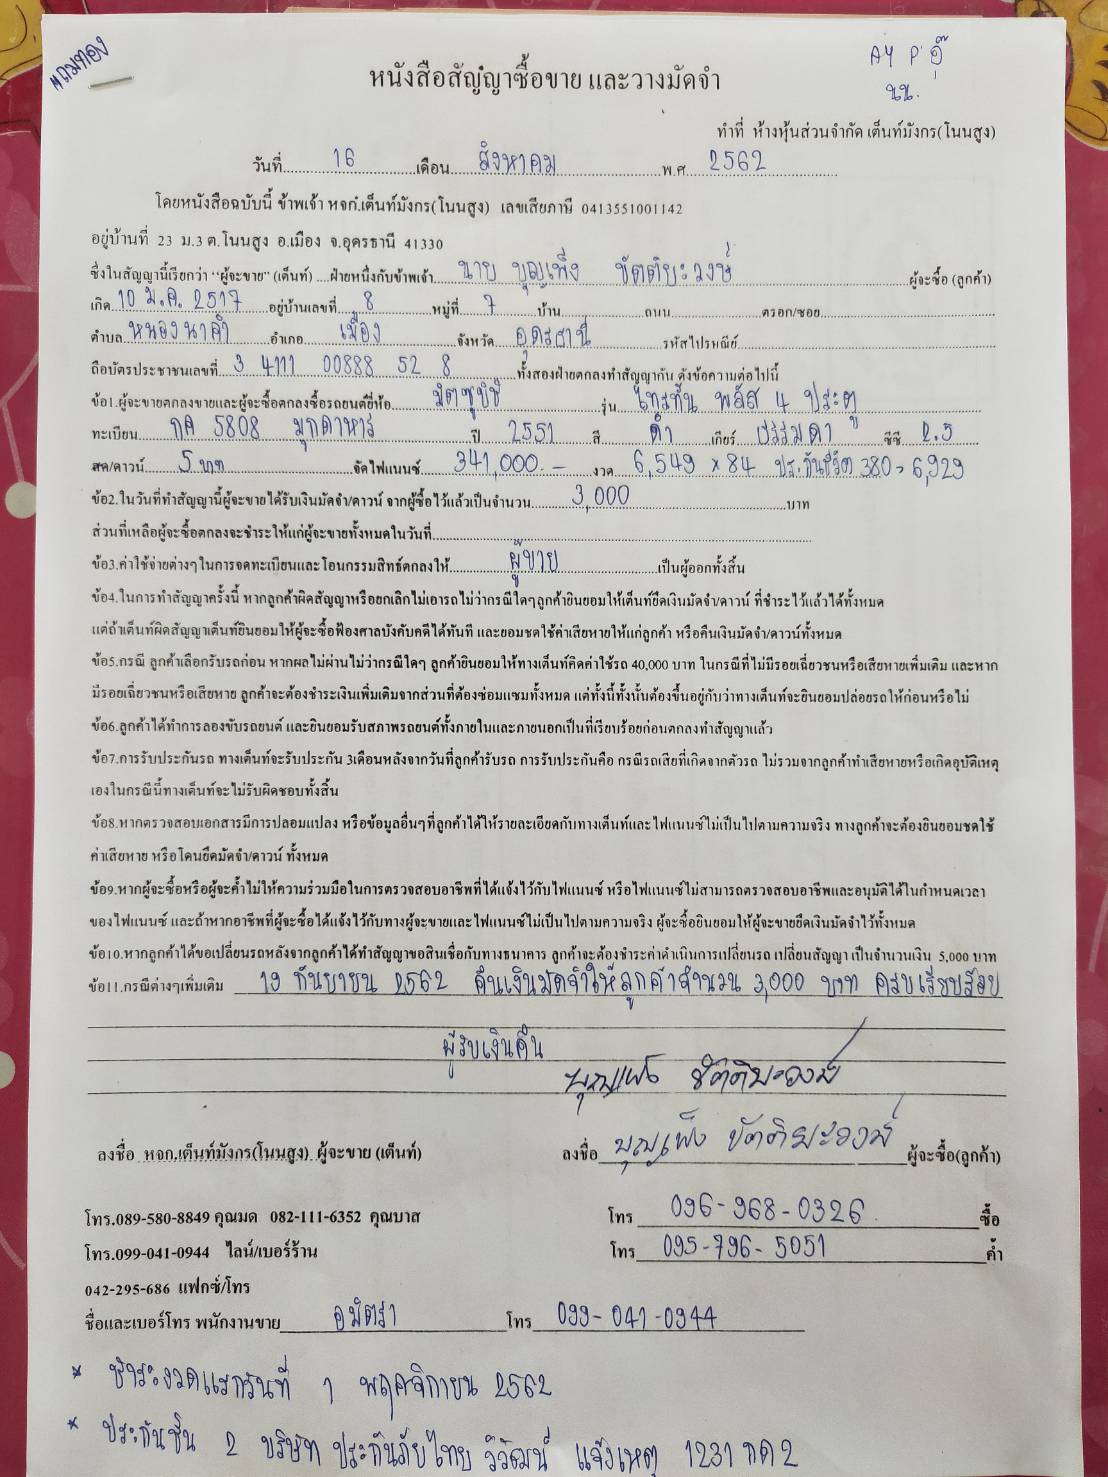 แถมทอง
AY P'อุ๊
นน.
หนังสือสัญญาซื้อขาย และวางมัดจำ
ทำที่ ห้างหุ้นส่วนจำกัด เต็นท์มังกร(โนนสูง)
วันที่ 16 เดือน สิงหาคม พ.ศ 2562
โดยหนังสือฉบับนี้ ข้าพเจ้า หจก.เต็นท์มังกร(โนนสูง) เลขเสียภาษี 0413551001142
อยู่บ้านที่ 23 ม.3 ต.โนนสูง อ.เมือง จ.อุดรธานี 41330
ซึ่งในสัญญานี้เรียกว่า "ผู้จะขาย" (เต็นท์) ....ฝ่ายหนึ่งกับข้าพเจ้า นาย บุญเพ็ง ขัตติยะวงษ์ ผู้จะซื้อ (ลูกค้า)
เกิด 10 ม.ค. 2517 อยู่บ้านเลขที่ 8 หมู่ที่ 7 บ้าน ถนน ตรอก/ซอย
ตำบล หนองนาคำ อำเภอ เมือง จังหวัด อุดรธานี รหัสไปรษณีย์
ถือบัตรประชาชนเลขที่ 3 4111 00888 52 8 ทั้งสองฝ่ายตกลงทำสัญญากัน ดังข้อความต่อไปนี้
ข้อ1.ผู้จะขายตกลงขายและผู้จะซื้อตกลงซื้อรถยนต์ยี่ห้อ มิตซูบิชิ รุ่น ไทรทัน พลัส 4 ประตู
ทะเบียน กค 5808 มุกดาหาร ปี 2551 สี ดำ เกียร์ ธรรมดา ซีซี 2.5
สด/ดาวน์ 5 บาท จัดไฟแนนซ์ 341,000.- งวด 6,549 x 84 ประกันชีวิต 380 > 6,929
ข้อ2.ในวันที่ทำสัญญานี้ผู้จะขายได้รับเงินมัดจำ/ดาวน์ จากผู้ซื้อไว้แล้วเป็นจำนวน 3,000 บาท
ส่วนที่เหลือผู้จะซื้อตกลงจะชำระให้แก่ผู้จะขายทั้งหมดในวันที่
ข้อ3.ค่าใช้จ่ายต่างๆในการจดทะเบียนและโอนกรรมสิทธ์ตกลงให้ ผู้ขาย เป็นผู้ออกทั้งสิ้น
ข้อ4.ในการทำสัญญาครั้งนี้ หากลูกค้าผิดสัญญาหรือยกเลิกไม่เอารถไม่ว่ากรณีใดๆลูกค้ายินยอมให้เต็นท์ยึดเงินมัดจำ/ดาวน์ ที่ชำระไว้แล้วได้ทั้งหมด
แต่ถ้าเต็นท์ผิดสัญญาเต็นท์ยินยอมให้ผู้จะซื้อฟ้องศาลบังคับคดีได้ทันที และยอมชดใช้ค่าเสียหายให้แก่ลูกค้า หรือคืนเงินมัดจำ/ดาวน์ทั้งหมด
ข้อ5.กรณี ลูกค้าเลือกรับรถก่อน หากผลไม่ผ่านไม่ว่ากรณีใดๆ ลูกค้ายินยอมให้ทางเต็นท์คิดค่าใช้รถ 40,000 บาท ในกรณีที่ไม่มีรอยเฉี่ยวชนหรือเสียหายเพิ่มเติม และหาก
มีรอยเฉี่ยวชนหรือเสียหาย ลูกค้าจะต้องชำระเงินเพิ่มเติมจากส่วนที่ต้องซ่อมแซมทั้งหมด แต่ทั้งนี้ทั้งนั้นต้องขึ้นอยู่กับว่าทางเต็นท์จะยินยอมปล่อยรถให้ก่อนหรือไม่
ข้อ6.ลูกค้าได้ทำการลองขับรถยนต์ และยินยอมรับสภาพรถยนต์ทั้งภายในและภายนอกเป็นที่เรียบร้อยก่อนตกลงทำสัญญาแล้ว
ข้อ7.การรับประกันรถ ทางเต็นท์จะรับประกัน 3เดือนหลังจากวันที่ลูกค้ารับรถ การรับประกันคือ กรณีรถเสียที่เกิดจากตัวรถ ไม่รวมจากลูกค้าทำเสียหายหรือเกิดอุบัติเหตุ
เองในกรณีนี้ทางเต็นท์จะไม่รับผิดชอบทั้งสิ้น
ข้อ8.หากตรวจสอบเอกสารมีการปลอมแปลง หรือข้อมูลอื่นๆที่ลูกค้าได้ให้รายละเอียดกับทางเต็นท์และไฟแนนซ์ไม่เป็นไปตามความจริง ทางลูกค้าจะต้องยินยอมชดใช้
ค่าเสียหาย หรือโดนยึดมัดจำ/ดาวน์ ทั้งหมด
ข้อ9.หากผู้จะซื้อหรือผู้จะค้ำไม่ให้ความร่วมมือในการตรวจสอบอาชีพที่ได้แจ้งไว้กับไฟแนนซ์ หรือไฟแนนซ์ไม่สามารถตรวจสอบอาชีพและอนุมัติได้ในกำหนดเวลา
ของไฟแนนซ์ และถ้าหากอาชีพที่ผู้จะซื้อได้แจ้งไว้กับทางผู้จะขายและไฟแนนซ์ไม่เป็นไปตามความจริง ผู้จะซื้อยินยอมให้ผู้จะขายยึดเงินมัดจำไว้ทั้งหมด
ข้อ10.หากลูกค้าได้ขอเปลี่ยนรถหลังจากลูกค้าได้ทำสัญญาขอสินเชื่อกับทางธนาคาร ลูกค้าจะต้องชำระค่าดำเนินการเปลี่ยนรถ เปลี่ยนสัญญา เป็นจำนวนเงิน 5,000 บาท
ข้อ11.กรณีต่างๆเพิ่มเติม 19 กันยายน 2562 คืนเงินมัดจำให้ลูกค้าจำนวน 3,000 บาท ครบเรียบร้อย
ผู้รับเงินคืน
บุญเพ็ง ขัตติยะวงษ์
ลงชื่อ หจก.เต็นท์มังกร(โนนสูง) ผู้จะขาย (เต็นท์) ลงชื่อ บุญเพ็ง ขัตติยะวงษ์ ผู้จะซื้อ(ลูกค้า)
โทร.089-580-8849 คุณมด 082-111-6352 คุณบาส โทร 096-968-0326 ซื้อ
โทร.099-041-0944 ไลน์/เบอร์ร้าน โทร 095-796-5051 ค้ำ
042-295-686 แฟกซ์/โทร
ชื่อและเบอร์โทร พนักงานขาย อมิตรา โทร 099-041-0944
* ชำระงวดแรกวันที่ 1 พฤศจิกายน 2562
* ประกันชั้น 2 บริษัท ประกันภัยไทยวิวัฒน์ แจ้งเหตุ 1231 กด 2